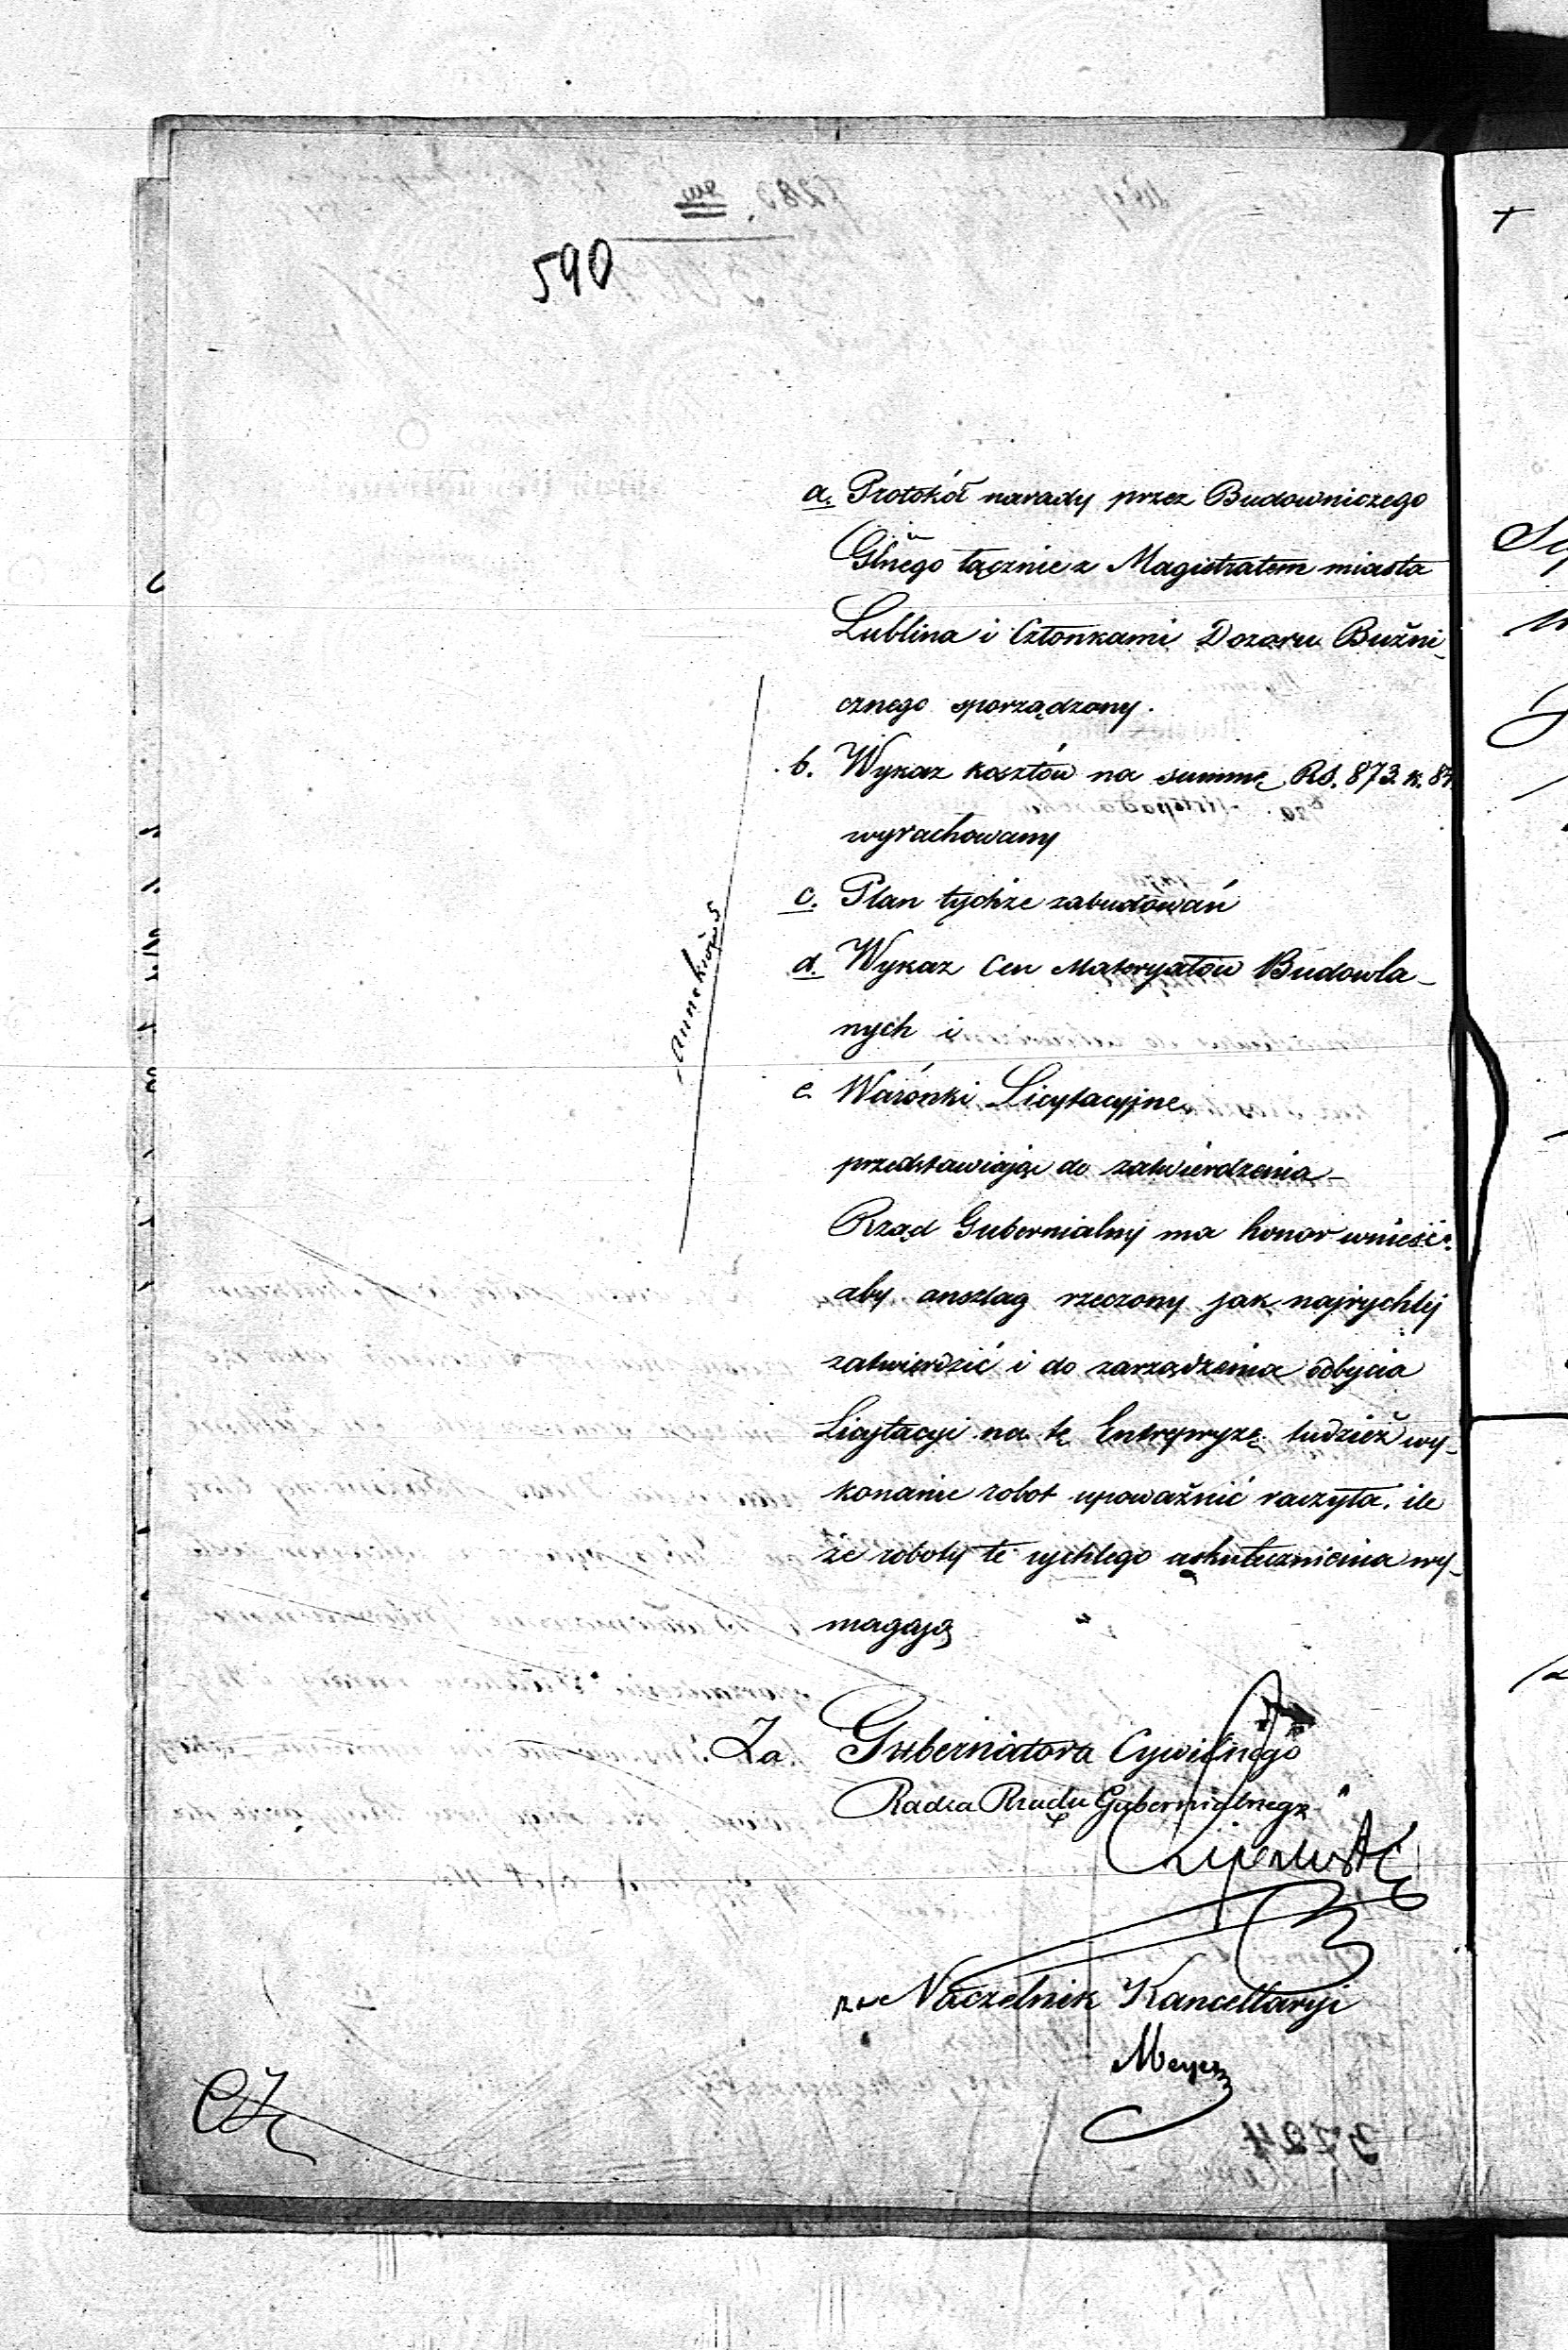 590
a. Protokół narady przez Budowniczego
Głnego łącznie z Magistratem miasta
Lublina i Członkami Dozoru Bużni-
cznego sporządzony.
b. Wykaz kosztów na summę RS. 873 k. 84
wyrachowany
c. Plan tychże zabudowań
d. Wykaz Cen Materyałów Budowla-
nych i
e Warónki Licytacyjne
przedstawiając do zatwierdzenia
Rząd Gubernialny ma honor wnieść:
aby anszlag rzeczony jak najrychlej
zatwierdzić i do zarządzenia odbycia
Licytacyi na tę Entrepryzę tudzież wy-
konanie robot upoważnić raczyła, ile
że roboty te rychłego uskutecznienia wy-
magają
Za Gubernatora Cywilnego
Radca Rządu Gubernialnego
Naczelnik Kancellaryi
Meyer
3724